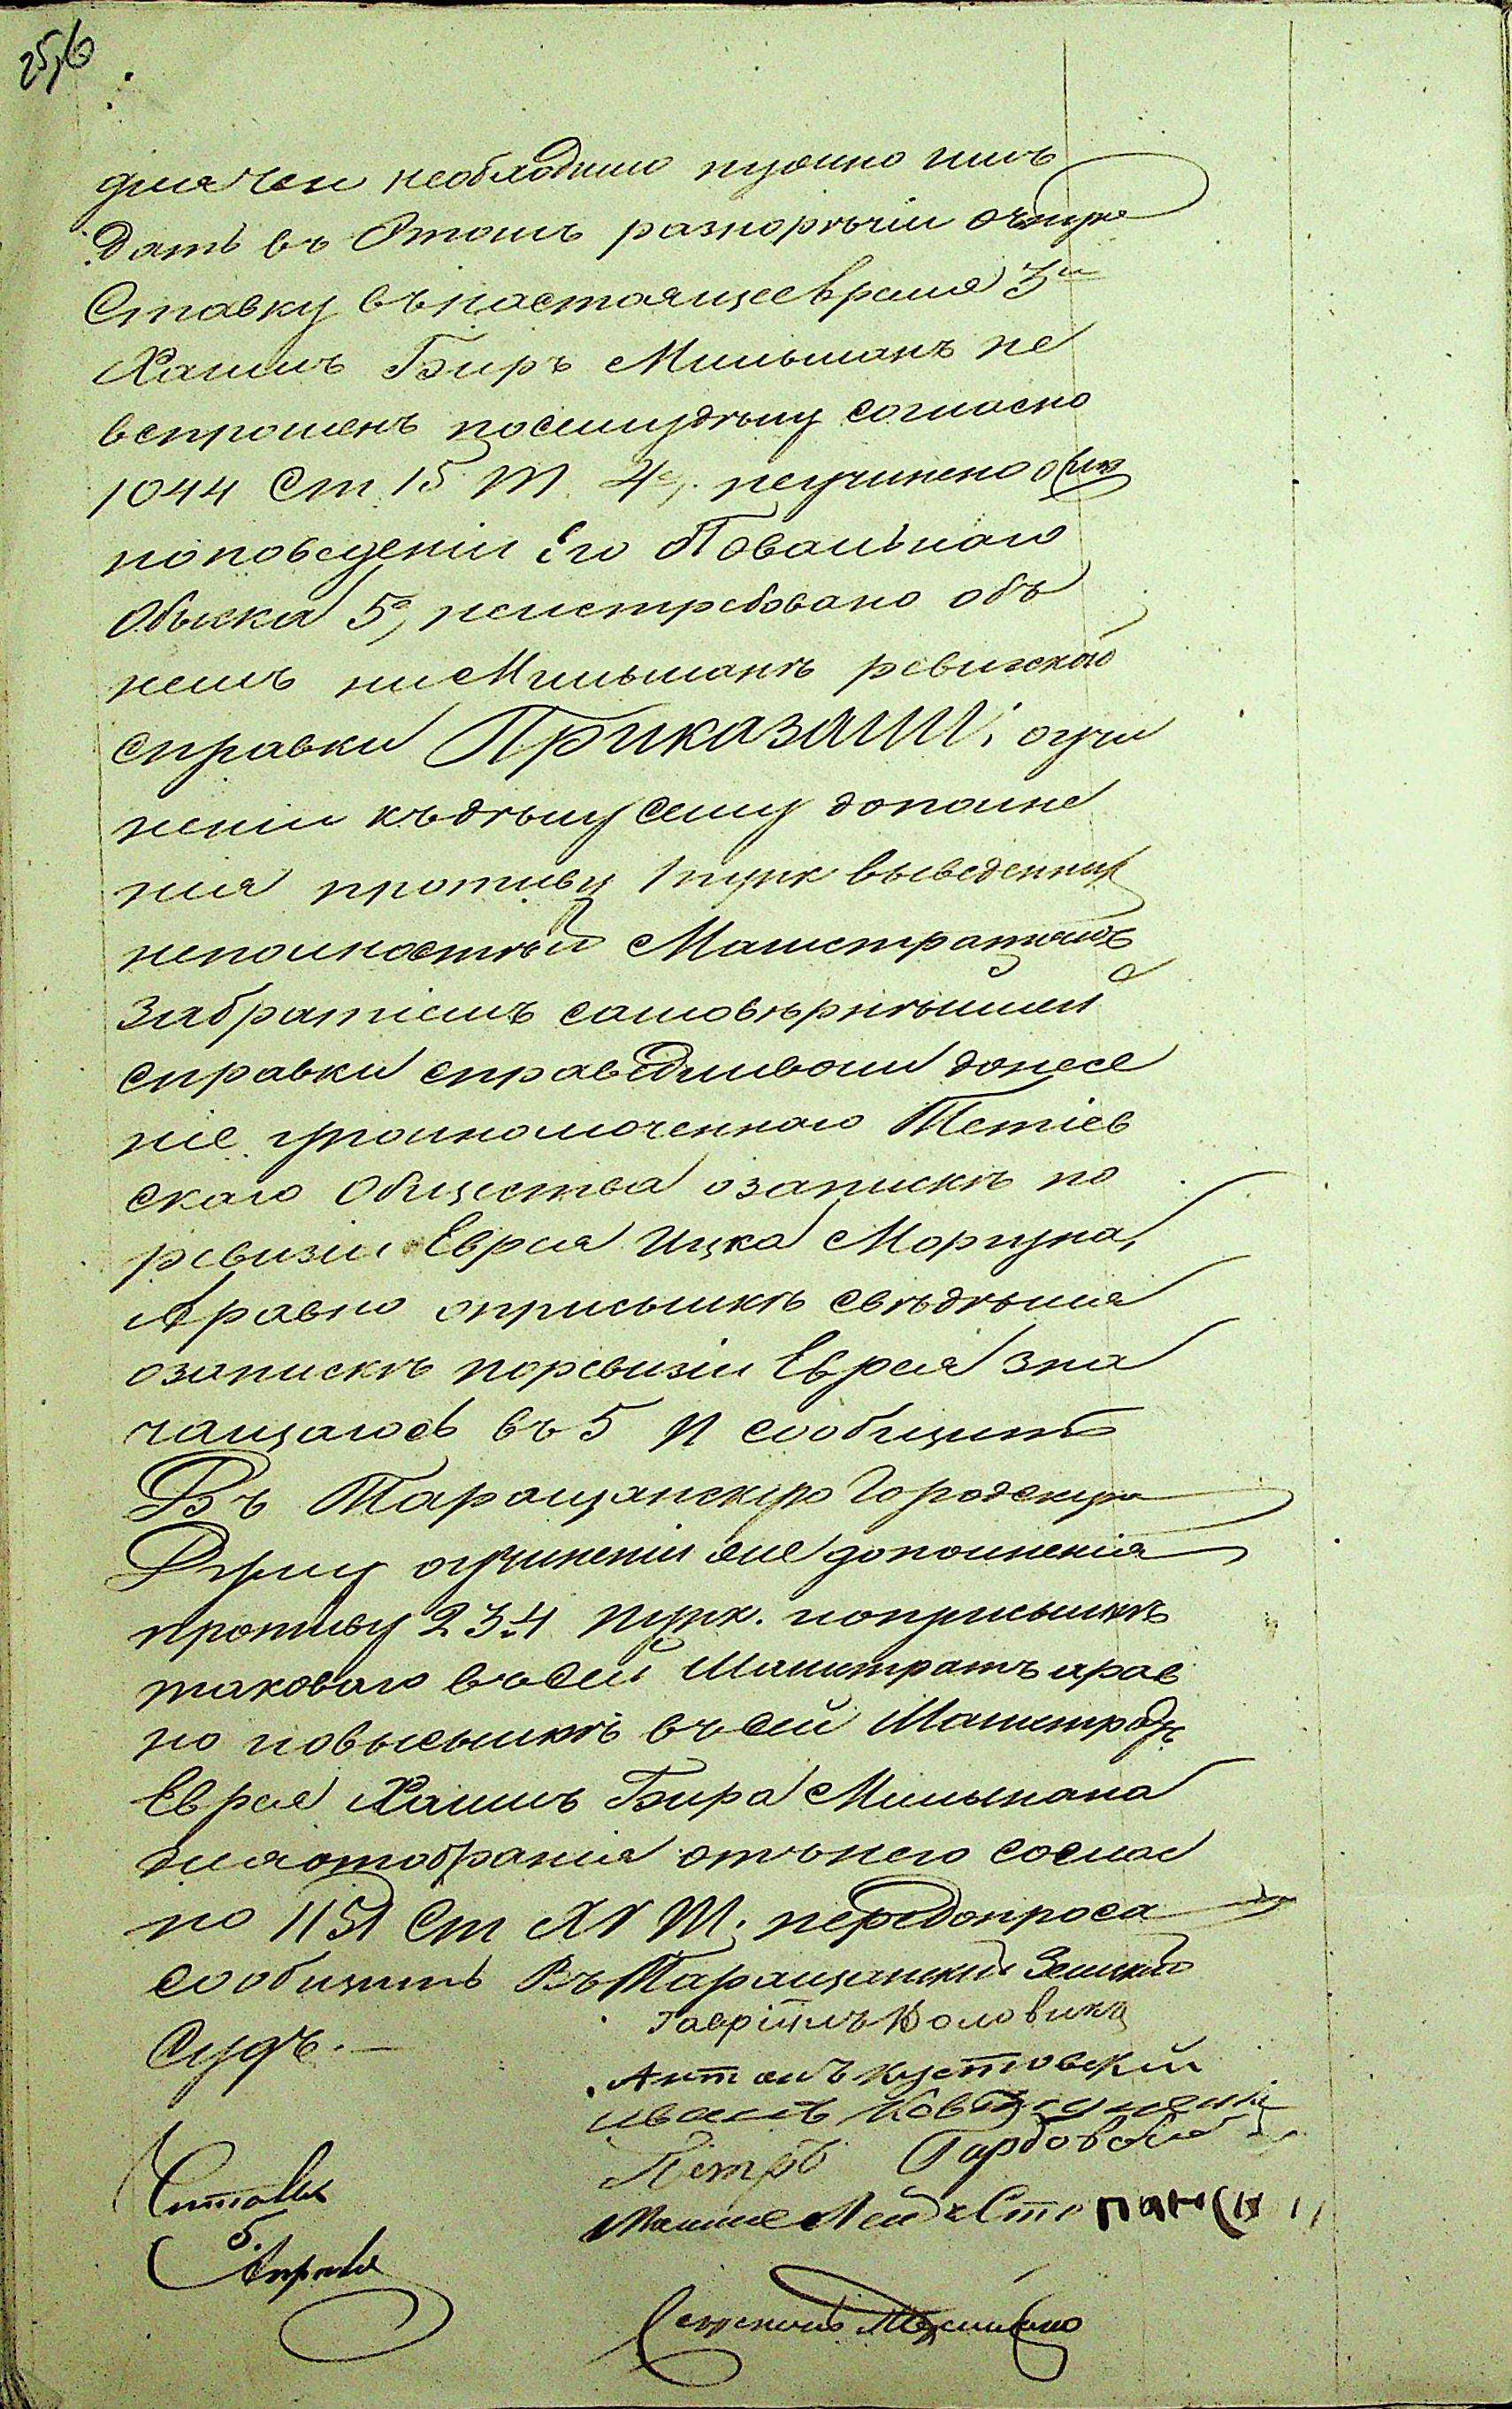 256
для чего необходимо нужно имъ
дать въ этомъ разноречіи очную
Ставку въ настоящее время 3е
Хаимъ Беиръ Мильманъ не
вспрошенъ посемудѣлу согласно
1044 Ст. 15 Т. 4е, неучинено
поповеденіи Его Повальнаго
Обыска 5е, неистребовано объ
немъ ни Мильманѣ ревижской
справки Приказали: оучи
неніи къдѣлу сему дополне
нія противу 1 пунк выведенныхъ
неполностей Магистратомъ
забратіемъ самовѣрнѣйшей
справки справедливоли донесе
ніе уполномоченнаго Тетіев
скаго Общества озапискѣ по
ревизіи Еврея Ицка Моргуна,
Аравно оприсылкѣ свѣдѣнія
озапискѣ поревизіи Еврея зна
чащагось въ 5 п сообщить
Въ Таращанскую Городскую
Думу оучиненіи же дополненія
противу 2 3 4 пунк. иоприсылкѣ
таковаго въсей Магистратъ арав
но иовысылкѣ въсей Магистратъ
Еврея Хаимъ Беира Мильмана
дляотобранія отънего соглас
но 1151 Ст XV Т. передопроса
сообщить Въ Таращанский Земский
Судъ.
Гаврiилъ Воловикъ
Антонъ Кустовский
Иванъ
Петръ Гарбовский
Читалъ
5.
Апреля